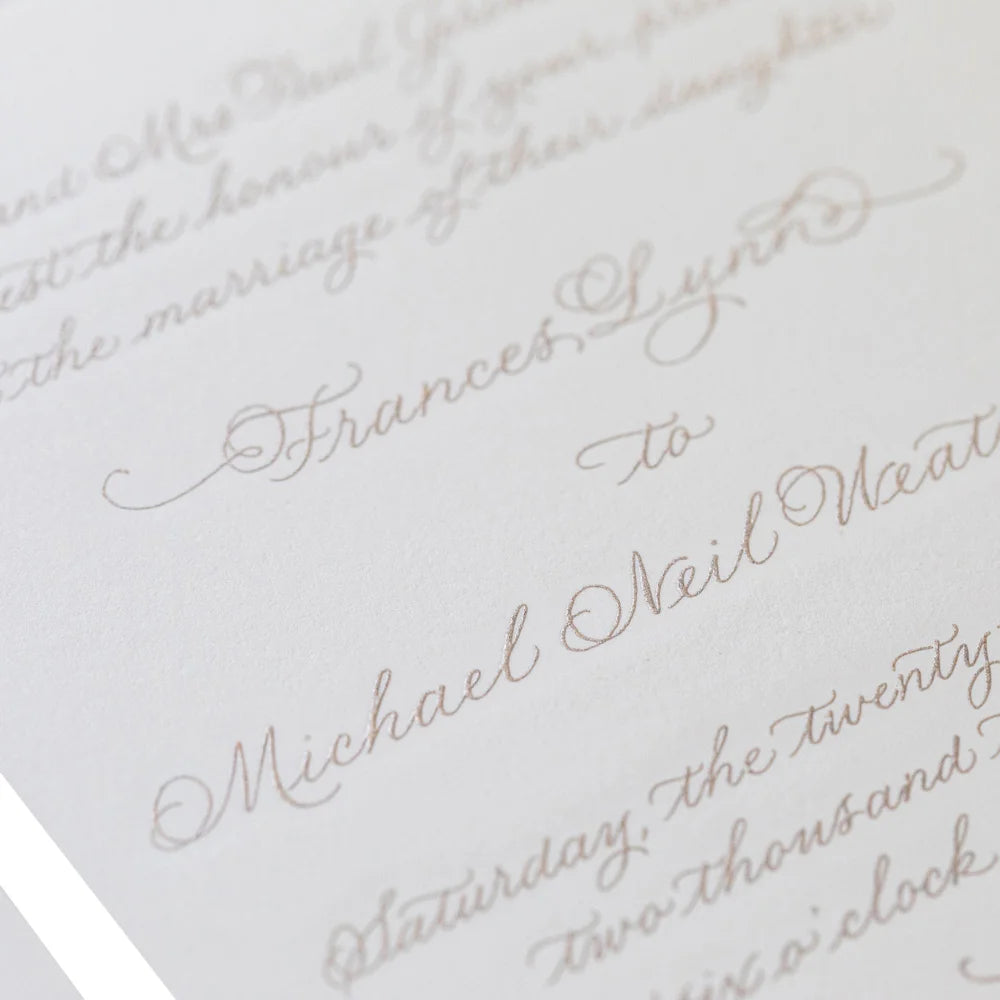 and Mrs Paul
the honour of your
the marriage of their daughter
Frances Lynn
to
Michael Neil
Saturday, the twenty
two thousand
six o'clock